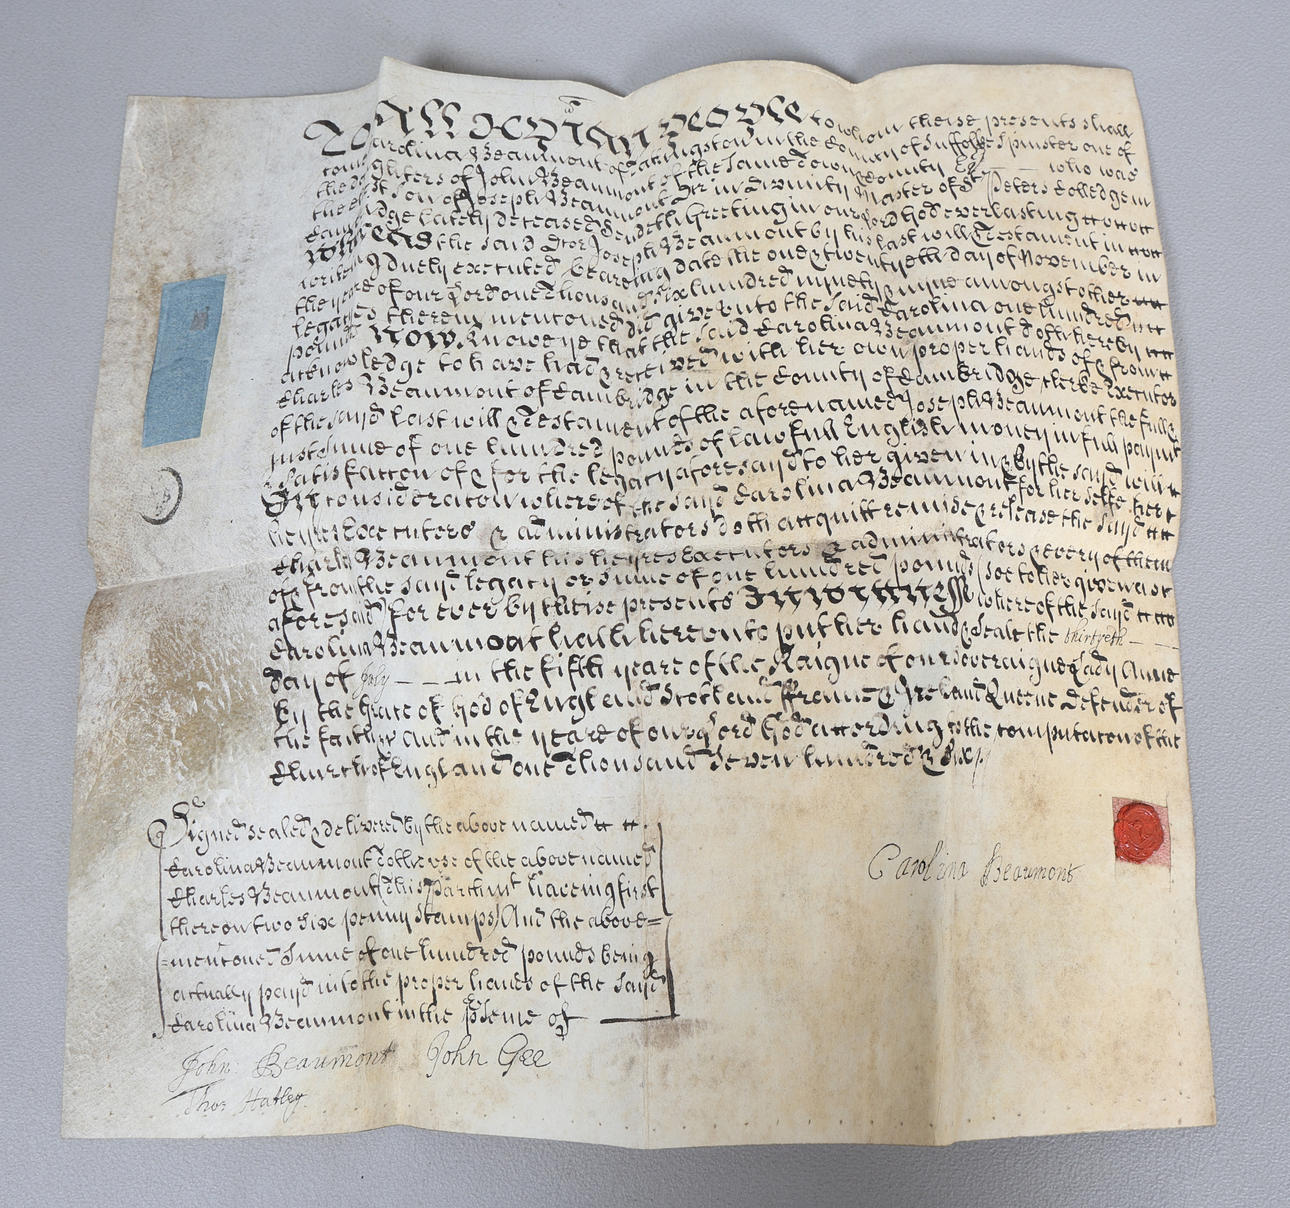 To All Xp̄ian people to whom theise presents shall
come Carolina Beaumont of Tattingston in the County of Suffolke Spinster one of
the daughters of John Beaumont of the same Towne & County Esqr who was
the eldest Son of Joseph Beaumont Dr in Divinity Master of St Peters Colledge in
Cambridge lately deceased Sendeth Greeting in our Lord God everlasting
Whereas the said Dctor Joseph Beaumont by his last will & Testament in
writeing duely executed beareing date the one & twentyeth day of November in
the yeare of our Lord one Thousand six hundred ninety & nine amongst other
legacies therein mentoned did give unto the said Carolina one hundred
pounds Now Knowe ye that the said Carolina Beaumont doth hereby
acknowledge to have had & received with her own proper hands of & from
Charles Beaumont of Cambridge in the County of Cambridge Clerke Executor
of the sayd last will & Testament of the afore named Joseph Beaumont the full &
just Sume of one hundred pounds of lawfull English money in full paymt
& satisfaccon of & for the legacy aforesayd to her given in & by the sayd will
In consideratoun whereof the sayd Carolina Beaumont for her selfe her
heyres Executors & administrators doth acquitt remise & release the sayd
Charles Beaumont his heyres Executors & administrators & every of them
of & from the sayd legacy or Sume of one hundred pounds soe to her given as
aforesayd for ever by theise presents In Wittness whereof the sayd
Carolina Beaumont hath hereunto put her hand & Seale the thirtyeth
day of July in the fifth yeare of the Raigne of our Soveraigne Lady Anne
by the Grace of God of England Scotland Ffrance & Ireland Queene Defender of
the faith &c And in the yeare of our Lord God according to the computacon of the
Church of England one Thousand Seven hundred & Six
Signed sealed & delivered by the above named
Carolina Beaumont to the use of the above named
Charles Beaumont (This Parchmt haveing first
thereon two six penny stamps) And the above=
=mentoned Sume of one hundred pounds being
actually payd into the proper hands of the Sayd
Carolina Beaumont in the p̄sence of
Carolina Beaumont
John: Beaumont John Gee
Thos Hatley